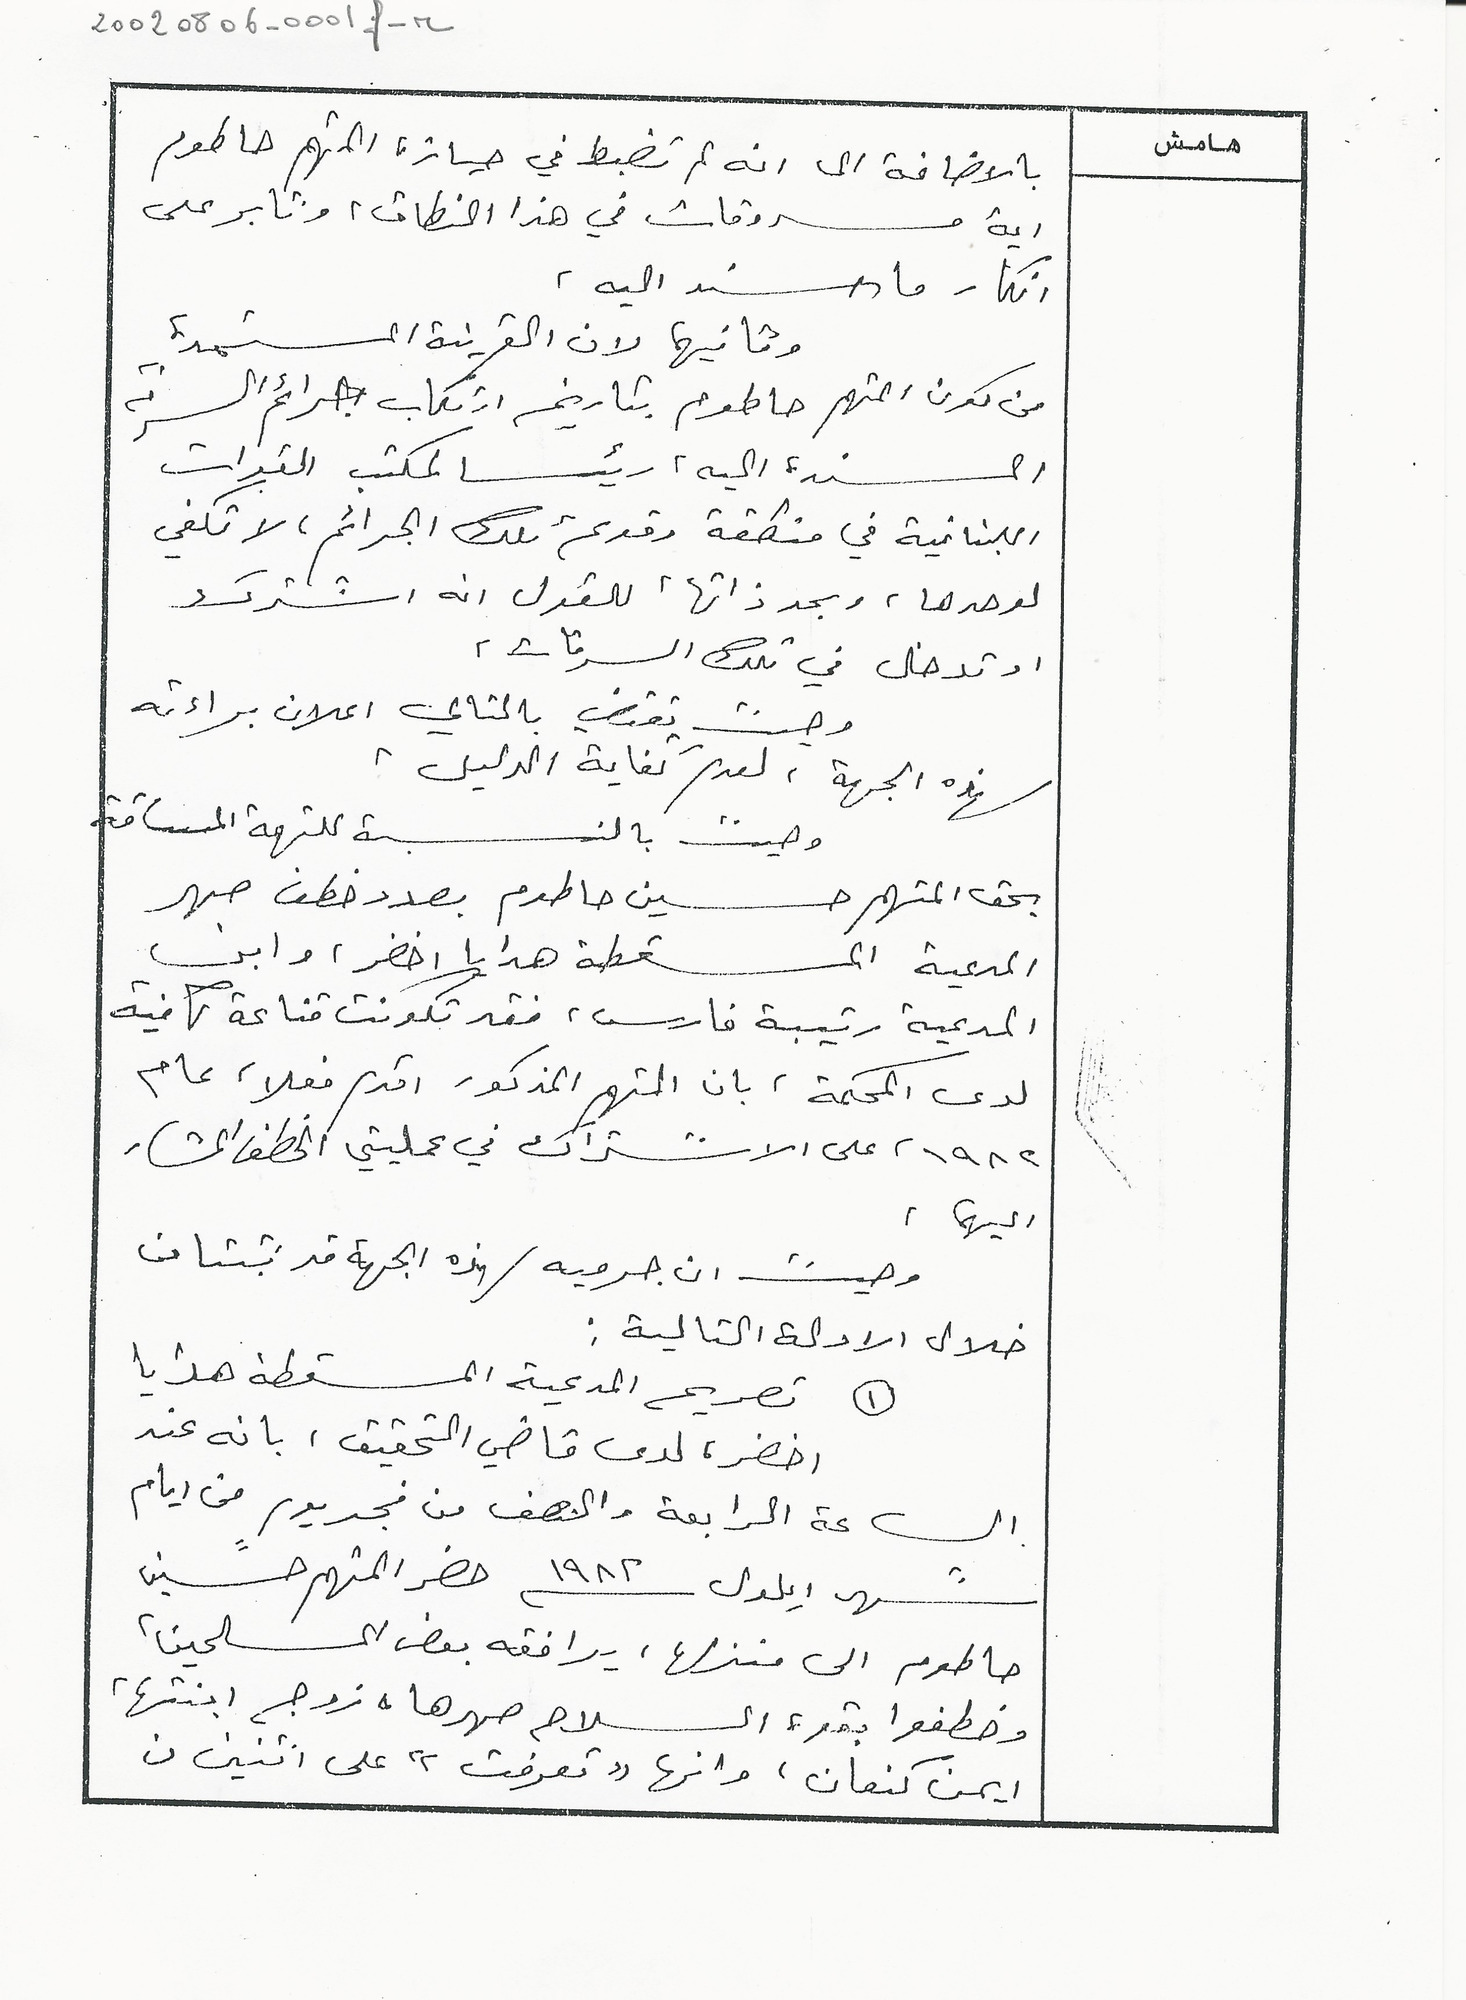 20020806-0001f-r
هامش
بالاضافة الى انه لم تضبط في حيازة المتهم حاطوم
اية مسروقات في هذا النطاق، وثابر على
انكار ما اسند اليه ،
وثانيها لان القرينة المستمدة
من كون المتهم حاطوم بتاريخ ارتكاب جرائم السرقة
المسندة اليه، رئيسا لمكتب القوات
اللبنانية في منطقة وقوع تلك الجرائم، لا تكفي
لوحدها، وبحد ذاتها، للقول انه اشترك
او تدخل في تلك السرقات ،
وحيث يقتضي بالتالي اعلان براءته
لهذه الجهة ، لعدم كفاية الدليل ،
وحيث بالنسبة للتهمة المساقة
بحق المتهم حسين حاطوم بصدد خطف صهر
المدعية المسقطة هدايا اخضر، وابن
المدعية رتيبة فارس، فقد تكونت قناعة كافية
لدى المحكمة ، بان المتهم المذكور اقدم فعلا، عام
١٩٨٢، على الاشتراك في عمليتي الخطف المشار
اليهما ،
وحيث ان جرميه لهذه الجهة قد ثبتتا من
خلال الادلة التالية :
١ تصريح المدعية المسقطة هدايا
اخضر، لدى قاضي التحقيق ، بانه عند
الساعة الرابعة والنصف من فجر يومٍ من ايام
شهر ايلول ١٩٨٢ حضر المتهم حسين
حاطوم الى منزلها ، يرافقه بعض المسلحين،
وخطفوا بقوة السلاح صهرها، زوج ابنتها،
ايمن كنعان ، وانها "تعرفت" على اثنين من